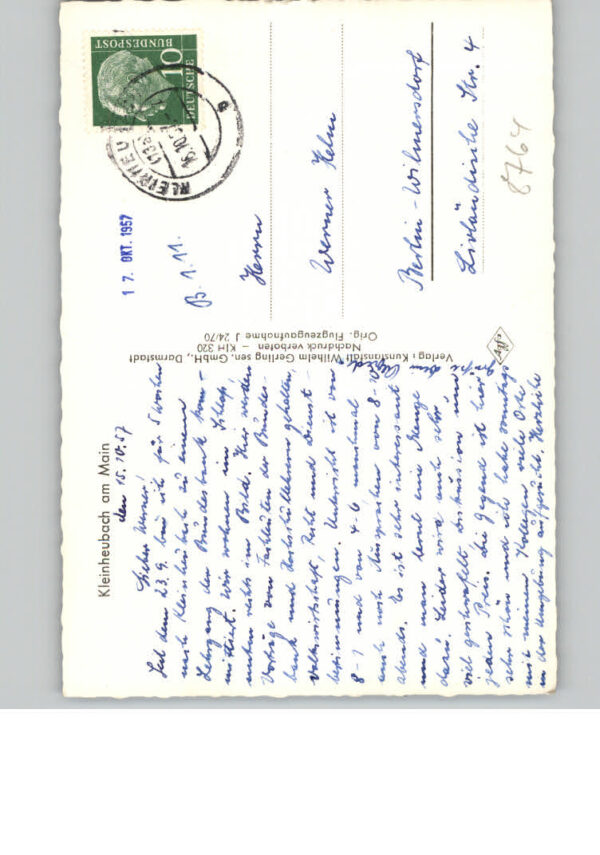 Kleinheubach am Main
den 15.10.57
Lieber Werner!
Seit dem 23.9. bin ich für 5 Wochen
nach Kleinheubach zu einem
Lehrgang der Bundesbank kom-
mittiert. Wir wohnen im Schloß,
unten rechts im Bild. Hier werden
Vorträge von Fachleuten der Bundes-
bank und Hochschullehrern gehalten,
Volkswirtschaft, Recht und Dienst-
bestimmungen. Unterricht ist von
8-1 und von 4-6 manchmal
auch noch Aussprachen von 8-10
abends. Es ist sehr interessant
und man lernt eine Menge
dazu. Leider wird auch sehr
viel geschwafelt, Diskussion um
jeden Preis. Die Gegend ist hier
sehr schön und ich habe sonntags
mit meinen Kollegen viele Orte
in der Umgebung aufgesucht. Herzliche
Grüße Dein
Verlag: Kunstanstalt Wilhelm Gerling sen. GmbH., Darmstadt
Nachdruck verboten - KlH 320
Orig. Flugzeugaufnahme J 24/70
Agfa
DEUTSCHE
BUNDESPOST
10
KLEINHEU
(13a)
16.10.57
17. OKT. 1957
B. 1.11.
Herrn
Werner Helm
Berlin-Wilmersdorf
Livländische Str. 4
8764